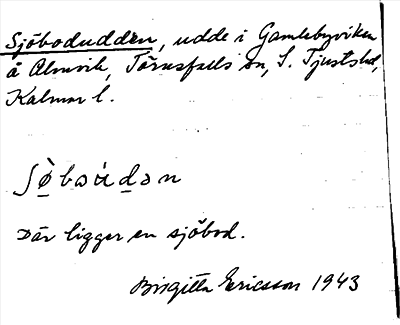 Sjöbodudden, udde i Gamlebyviken
å Almvik, Törnsfalls sn, S. Tjusts hd,
Kalmar l.
ʃø̀bωúdən
Där ligger en sjöbod.
Birgitta Ericsson 1943